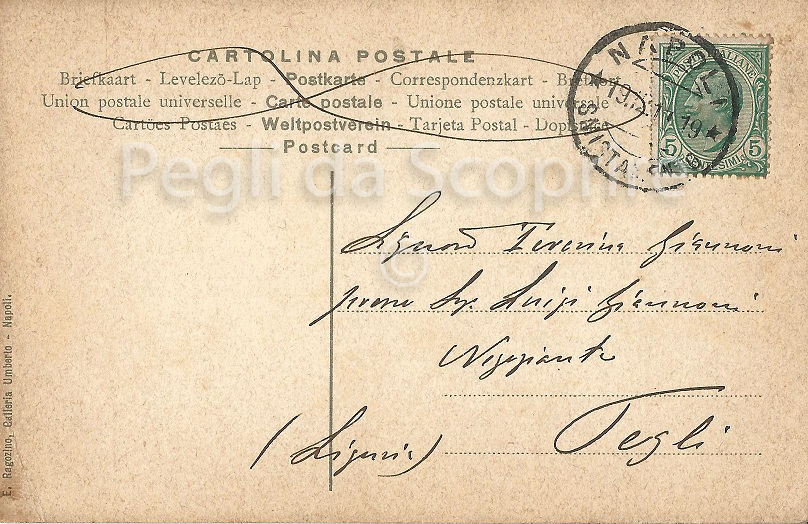 CARTOLINA POSTALE
Briefkaart - Levelezõ-Lap - Postkarte - Correspondenzkart -
Union postale universelle - Carte postale - Unione postale universale
Cartões Postaes - Weltpostverein - Tarjeta Postal -
Postcard
NAPOLI
POSTE ITALIANE
5 5
Pegli da Scoprire
©
Signora Teresina Giannoni
presso Sig. Luigi Giannoni
Negoziante
Pegli
(Liguria)
E. Ragozino, Galleria Umberto - Napoli.